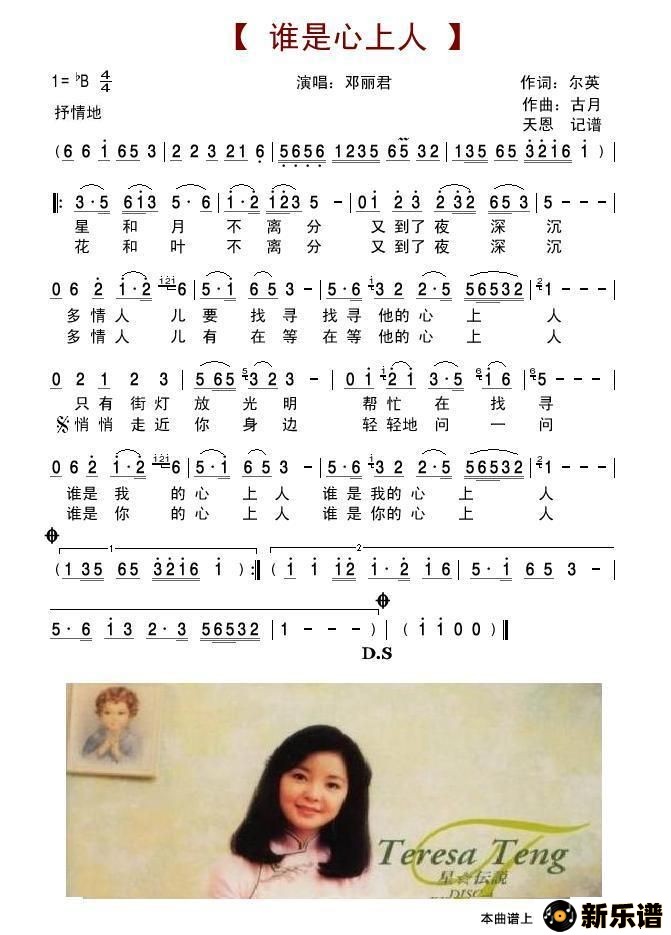 【 谁是心上人 】
1= ♭B 4/4
演唱：邓丽君
作词：尔英
作曲：古月
抒情地
天恩 记谱
( 6 6 i 65 3 | 2 2 3 21 6 | 5656 1235 65 32 | 135 65 3216 i ) |
‖: 3·5 6i3 5·6 | i·2 i23 5 - | 0i 23 232 653 | 5 - - - |
星 和 月 不 离 分 又到了夜 深 沉
花 和 叶 不 离 分 又到了夜 深 沉
0 6 2 i·2 i2i 6 | 5·i 65 3 - | 5·6 i 3 2 2·5 56532 | 2 1 - - - |
多情人 儿要 找寻 找寻他的心 上 人
多情人 儿有 在等 在等他的心 上 人
0 2 1 2 3 | 5 65 5 3 2 3 - | 0i i 2i 3·5 6 i6 | 6 5 - - - |
只有街灯 放 光 明 帮忙 在 找 寻
悄悄走近 你 身 边 轻轻地 问 一 问
0 6 2 i·2 i2i 6 | 5·i 65 3 - | 5·6 i 3 2 2·5 56532 | 2 1 - - - |
谁是我 的心 上 人 谁是我的心 上 人
谁是你 的心 上 人 谁是你的心 上 人
1 2
( 135 65 3216 i ) :‖ ( i i i2 i·2 i6 | 5·i 65 3 - |
5·6 i3 2·3 56532 | 1 - - - ) | ( i i 0 0 ) ‖
D.S
Teresa Teng
星☆伝説
DISC-1
本曲谱上 新乐谱